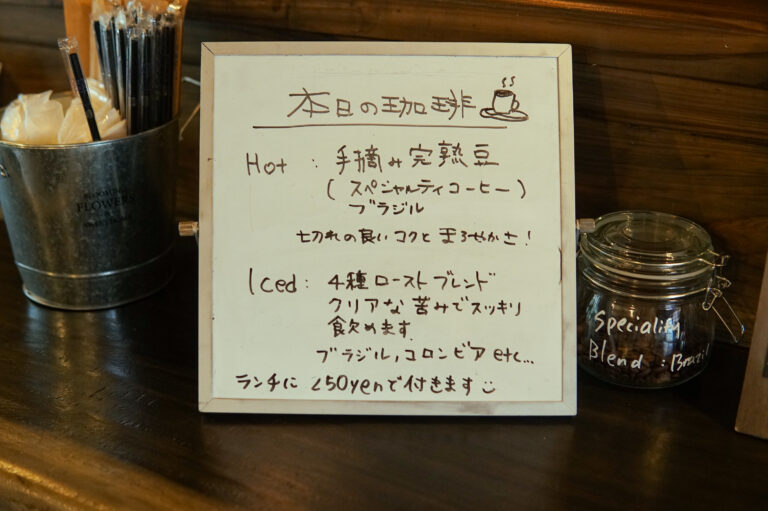 FLOWERS
本日の珈琲
Hot : 手摘み完熟豆
(スペシャルティコーヒー)
ブラジル
切れの良いコクとまろやかさ!
Iced : 4種ローストブレンド
クリアな苦みでスッキリ
飲めます
ブラジル,コロンビア etc...
ランチに 250yenで付きます
Speciality
Blend : Brazil